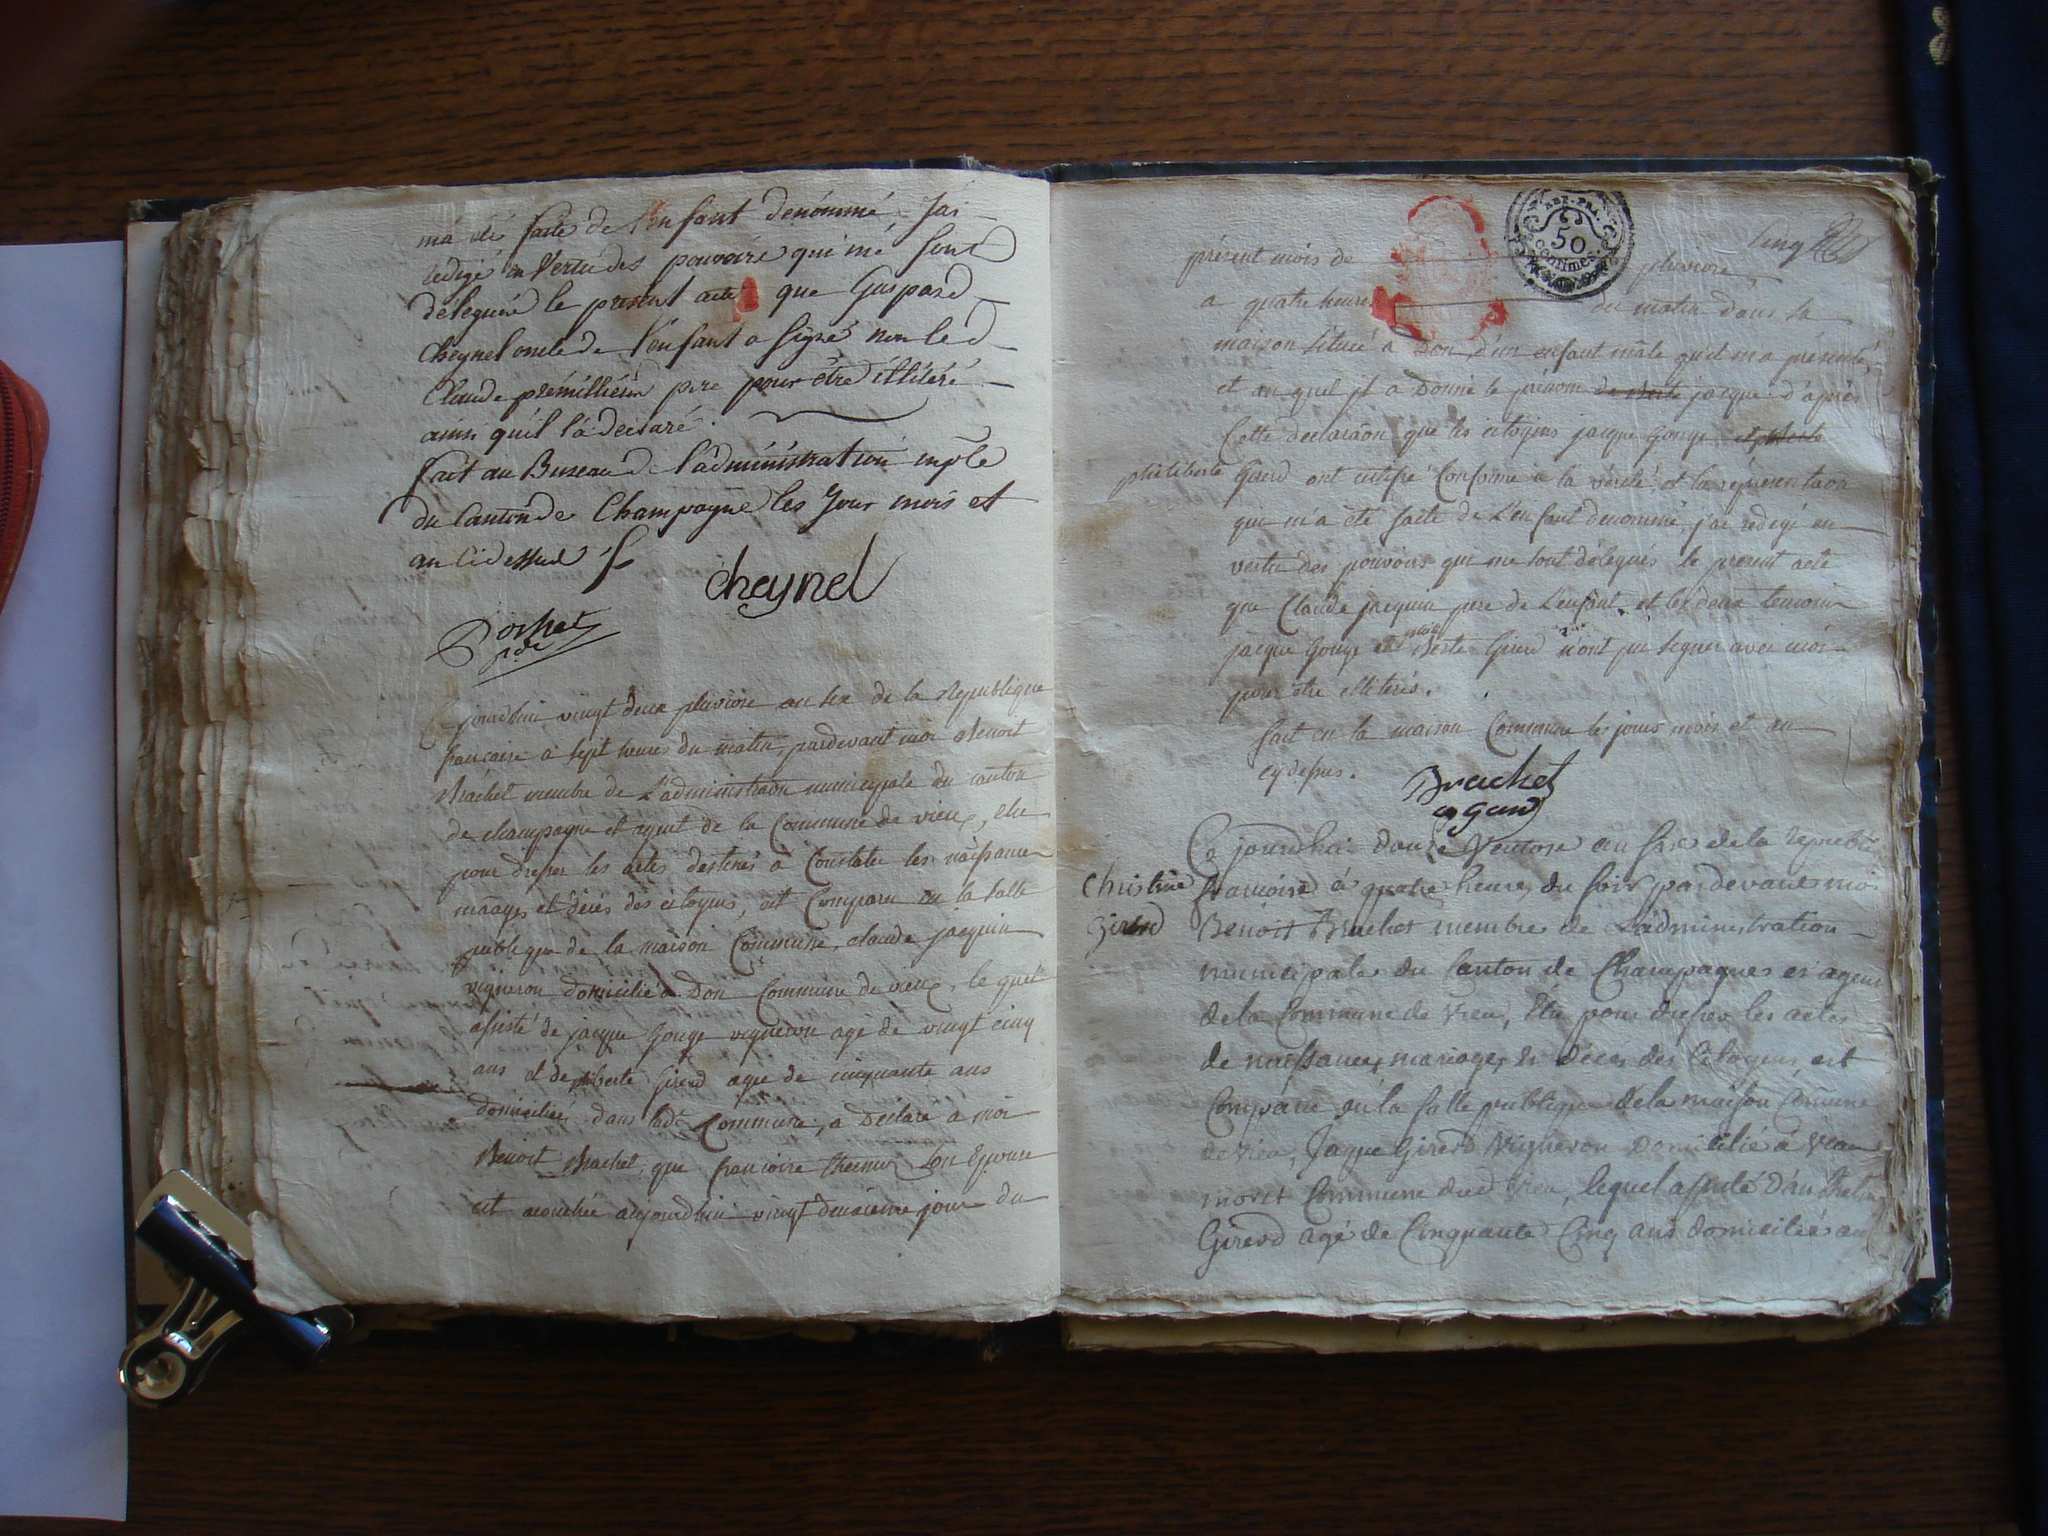 m'a été faite de l'enfant dénommé J'ai
rédigé en Vertu des pouvoirs qui me sont
délégués le présent acte que Gaspard
Cheynel oncle de l'enfant a signé non led
Claude prémillieu pere pour être illitéré
ainsi qu'il l'a déclaré.
fait au Bureau de l'administration mple
du Canton de Champagne les Jour mois et
an cidessus
Cheynel
Ce jourdhui vingt deux pluviose an six de la République
francaise a sept heures du matin, pardevant moi Benoit
Brachet membre de L'administraon municipale du canton
de champagne et agent de la Commune de vieu, elu
pour dresser les actes destinés a Constater les naissances
mâages et décés des citoyens, est Comparu en la salle
publique de la maison Commune, claude jacquin
vigneron domicilié a Don Commune de vieu, le quel
assisté de jacque Gouge vigneron agé de vingt cinq
ans et de philiberte Girerd agée de cinquante ans
domiciliés dans lade Commune, a Déclaré a moi
Benoit Brachet, que francoise son Epouse
est acouchée aujourdhui vingt deuxieme jour du
cinq
REP. FRA.
50
centimes.
présent mois de pluviose
a quatre heures du matin dans sa
maison située a Don, d'un enfant mâle qu'il m'a présenté,
et au quel il a Donné le prénom de jacque. d'après
Cette declaraõn que les citoyens jacque Gouge et
philiberte Girerd ont certifié Conforme a la vérité et la représentaõn
que m'a été faite de L'enfant denommé, j'ai redigé en
vertu des pouvoirs qui me sont délégués le present acte
que Claude jacquin pere de L'enfant et les deux temoins
jacque Gouge et philiberte Girerd n'ont pu signer avec moi
pour etre illiterés.
fait en la maison Commune les jours mois et an
cy dessus.
Brachet
agend
Ce jourdhui douze Ventose an six de la republ
Christine francoise à quatre heures du soir, pardevant moi
Girerd Benoit Brachet membre de L'administration
municipale du Canton de Champagne et agent
de la Commune de Vieu, Elu pour dresser les actes
de naissances, mariages, et décés des Citoyens, est
Comparu en la salle publique de la maison Comune
de Vieu, Jaque Girerd Vigneron Domicilié à
Commune dud Vieu, lequel assisté d'anthelme
Girerd agé de Cinquante Cinq ans domicilié au